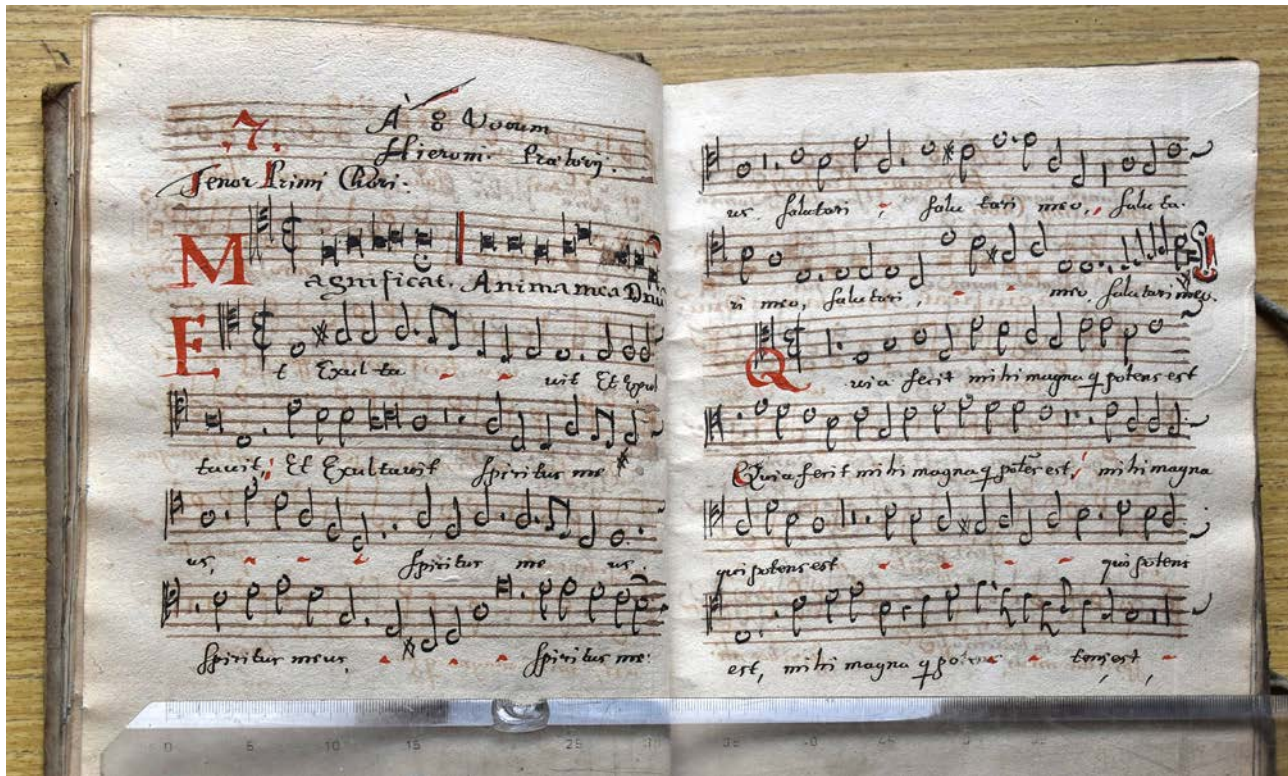 .7. A 8 Vocum
Hieroni. Prætorij.
Tenor Primi Chori.
Magnificat. Anima mea Dnū
Et Exulta - - vit Et Exul
tavit, Et Exultavit spiritus me
us, - - - spiritus me us.
spiritus meus, - - - spiritus me:
us. salutari, salutari meo, saluta.
ri meo, salutari, - - meo. salutari meo.
Quia fecit mihi magna q potens est
Quia fecit mihi magna q potēs est, mihi magna
qui potens est - - - - qui potens
est, mihi magna q potens - tens est, -
0 5 10 15 25 30 35